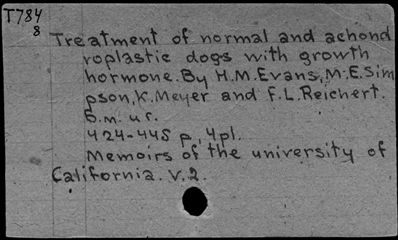 T784
8
Treatment of normal and achond
roplastic dogs with growth
hormone. By H.M.Evans, M.E.Sim
pson, K.Meyer and F.L.Reichert.
Б.м. и г.
424-445 p., 4pl.
Memoirs of the university of
California. V.2.